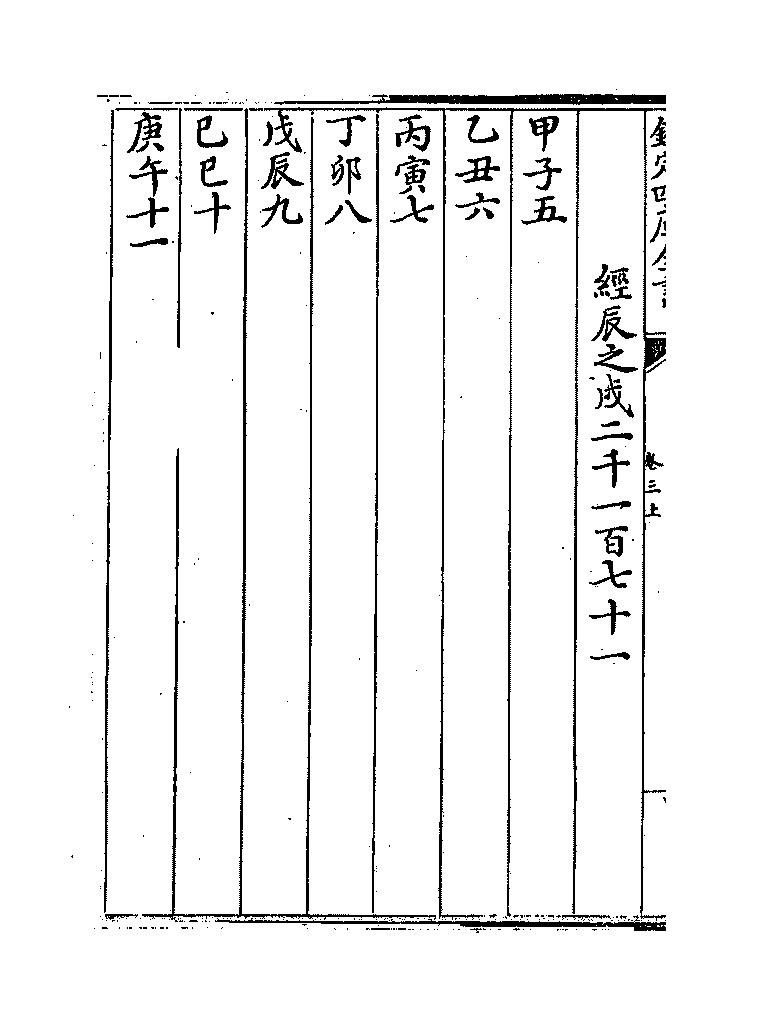 欽定四庫全書
卷三上
經辰之戌二千一百七十一
甲子五
乙丑六
丙寅七
丁卯八
戊辰九
己巳十
庚午十一